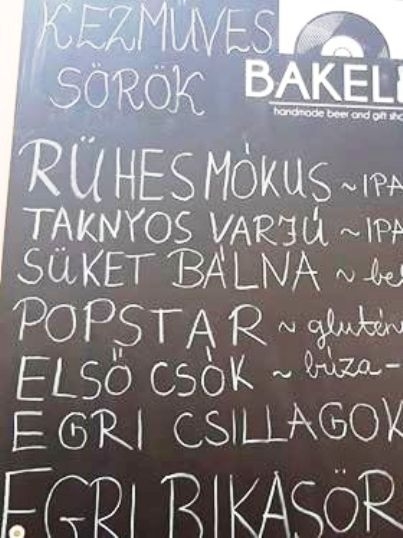 KÉZMŰVES
SÖRÖK
BAKEL
handmade beer and gift sho
RÜHES MÓKUS ~ IPA
TAKNYOS VARJÚ ~ IPA
SÜKET BÁLNA ~ bel
POPSTAR ~ glutén
ELSŐ CSÓK ~ búza-
EGRI CSILLAGOK
EGRI BIKASÖR